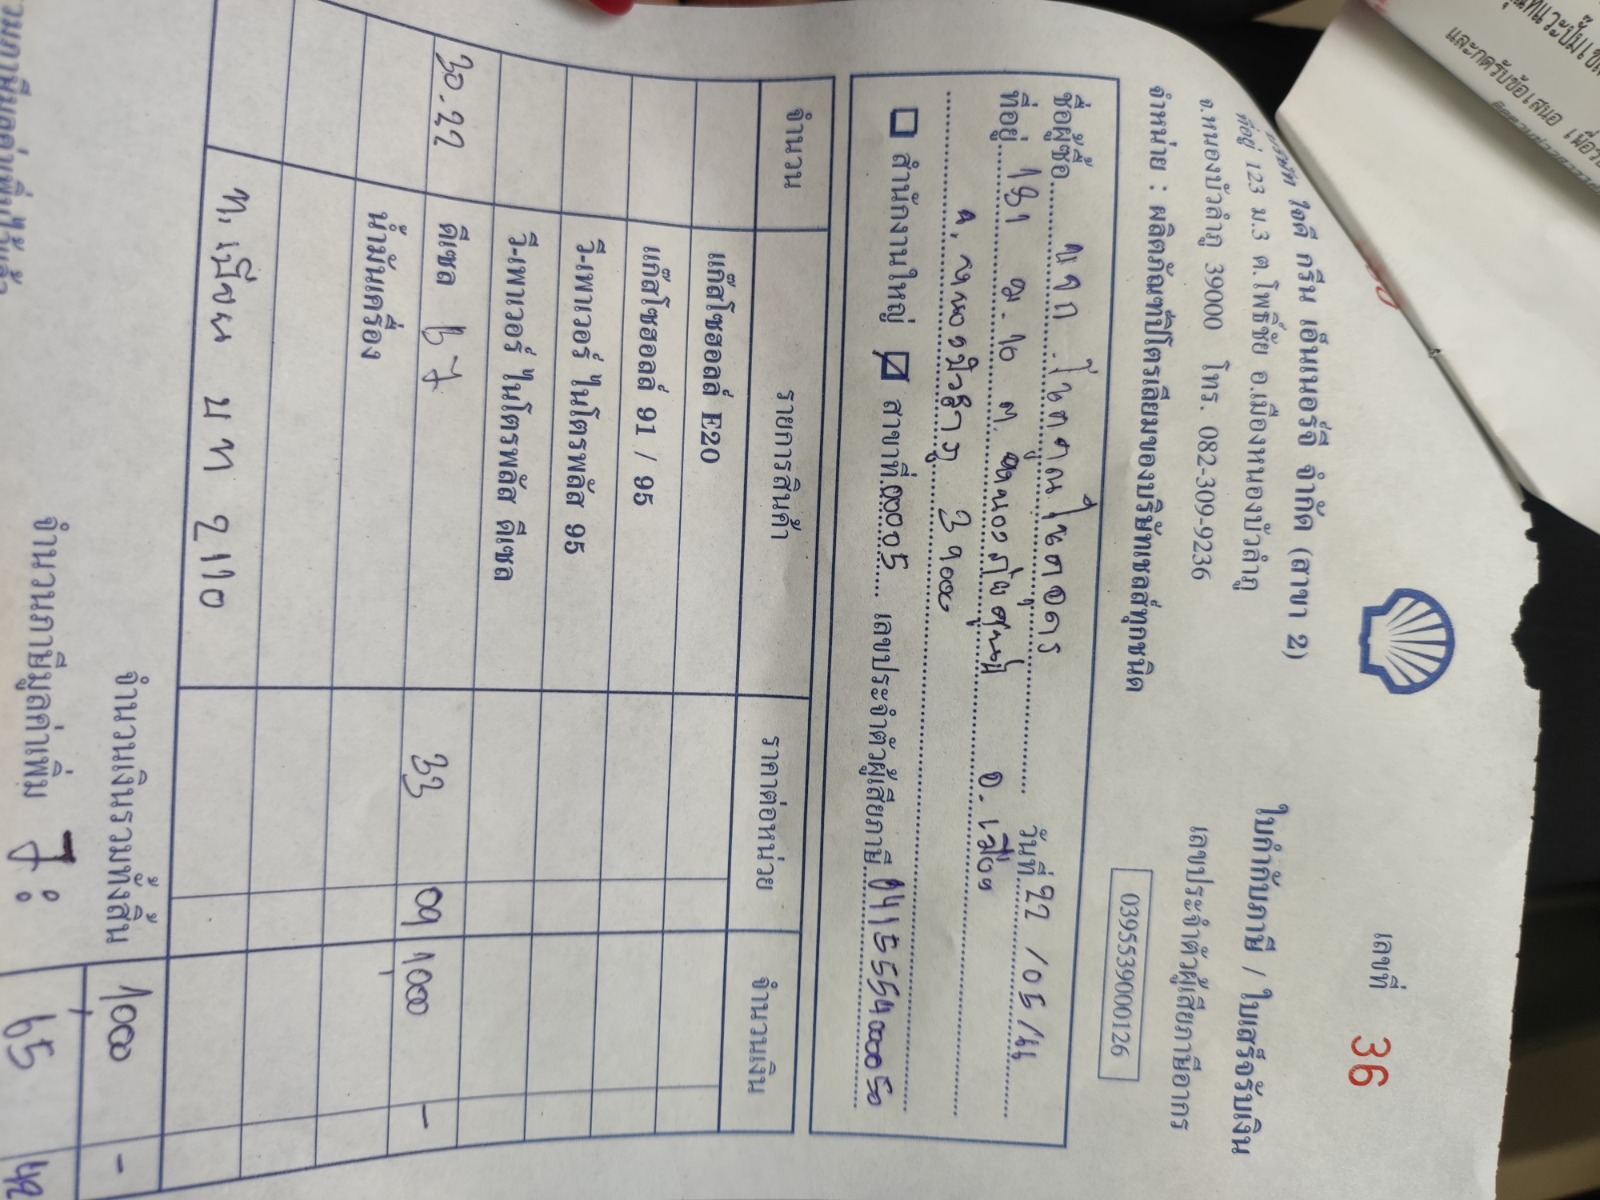 เลขที่ 36
บริษัท ใจดี กรีน เอ็นเนอร์จี จำกัด (สาขา 2)
ที่อยู่ 123 ม.3 ต.โพธิ์ชัย อ.เมืองหนองบัวลำภู
จ.หนองบัวลำภู 39000 โทร. 082-309-9236
จำหน่าย : ผลิตภัณฑ์ปิโตรเลียมของบริษัทเชลล์ทุกชนิด
ใบกำกับภาษี / ใบเสร็จรับเงิน
เลขประจำตัวผู้เสียภาษีอากร
0395539000126
ชื่อผู้ซื้อ วันที่ 22 / 05 / 66
ที่อยู่ 181 ม.10 ต. อ.เมือง
จ.หนองบัวลำภู 39000
สำนักงานใหญ่ สาขาที่ 00005 เลขประจำตัวผู้เสียภาษี
จำนวน รายการสินค้า ราคาต่อหน่วย จำนวนเงิน
แก๊สโซฮอลล์ E20
แก๊สโซฮอลล์ 91 / 95
วี-เพาเวอร์ ไนโตรพลัส 95
วี-เพาเวอร์ ไนโตรพลัส ดีเซล
30.22 ดีเซล b7 33 09 1,000 -
น้ำมันเครื่อง
ท.เบียน บท 2110
จำนวนเงินรวมทั้งสิ้น 1,000 -
จำนวนภาษีมูลค่าเพิ่ม 7% 65 42